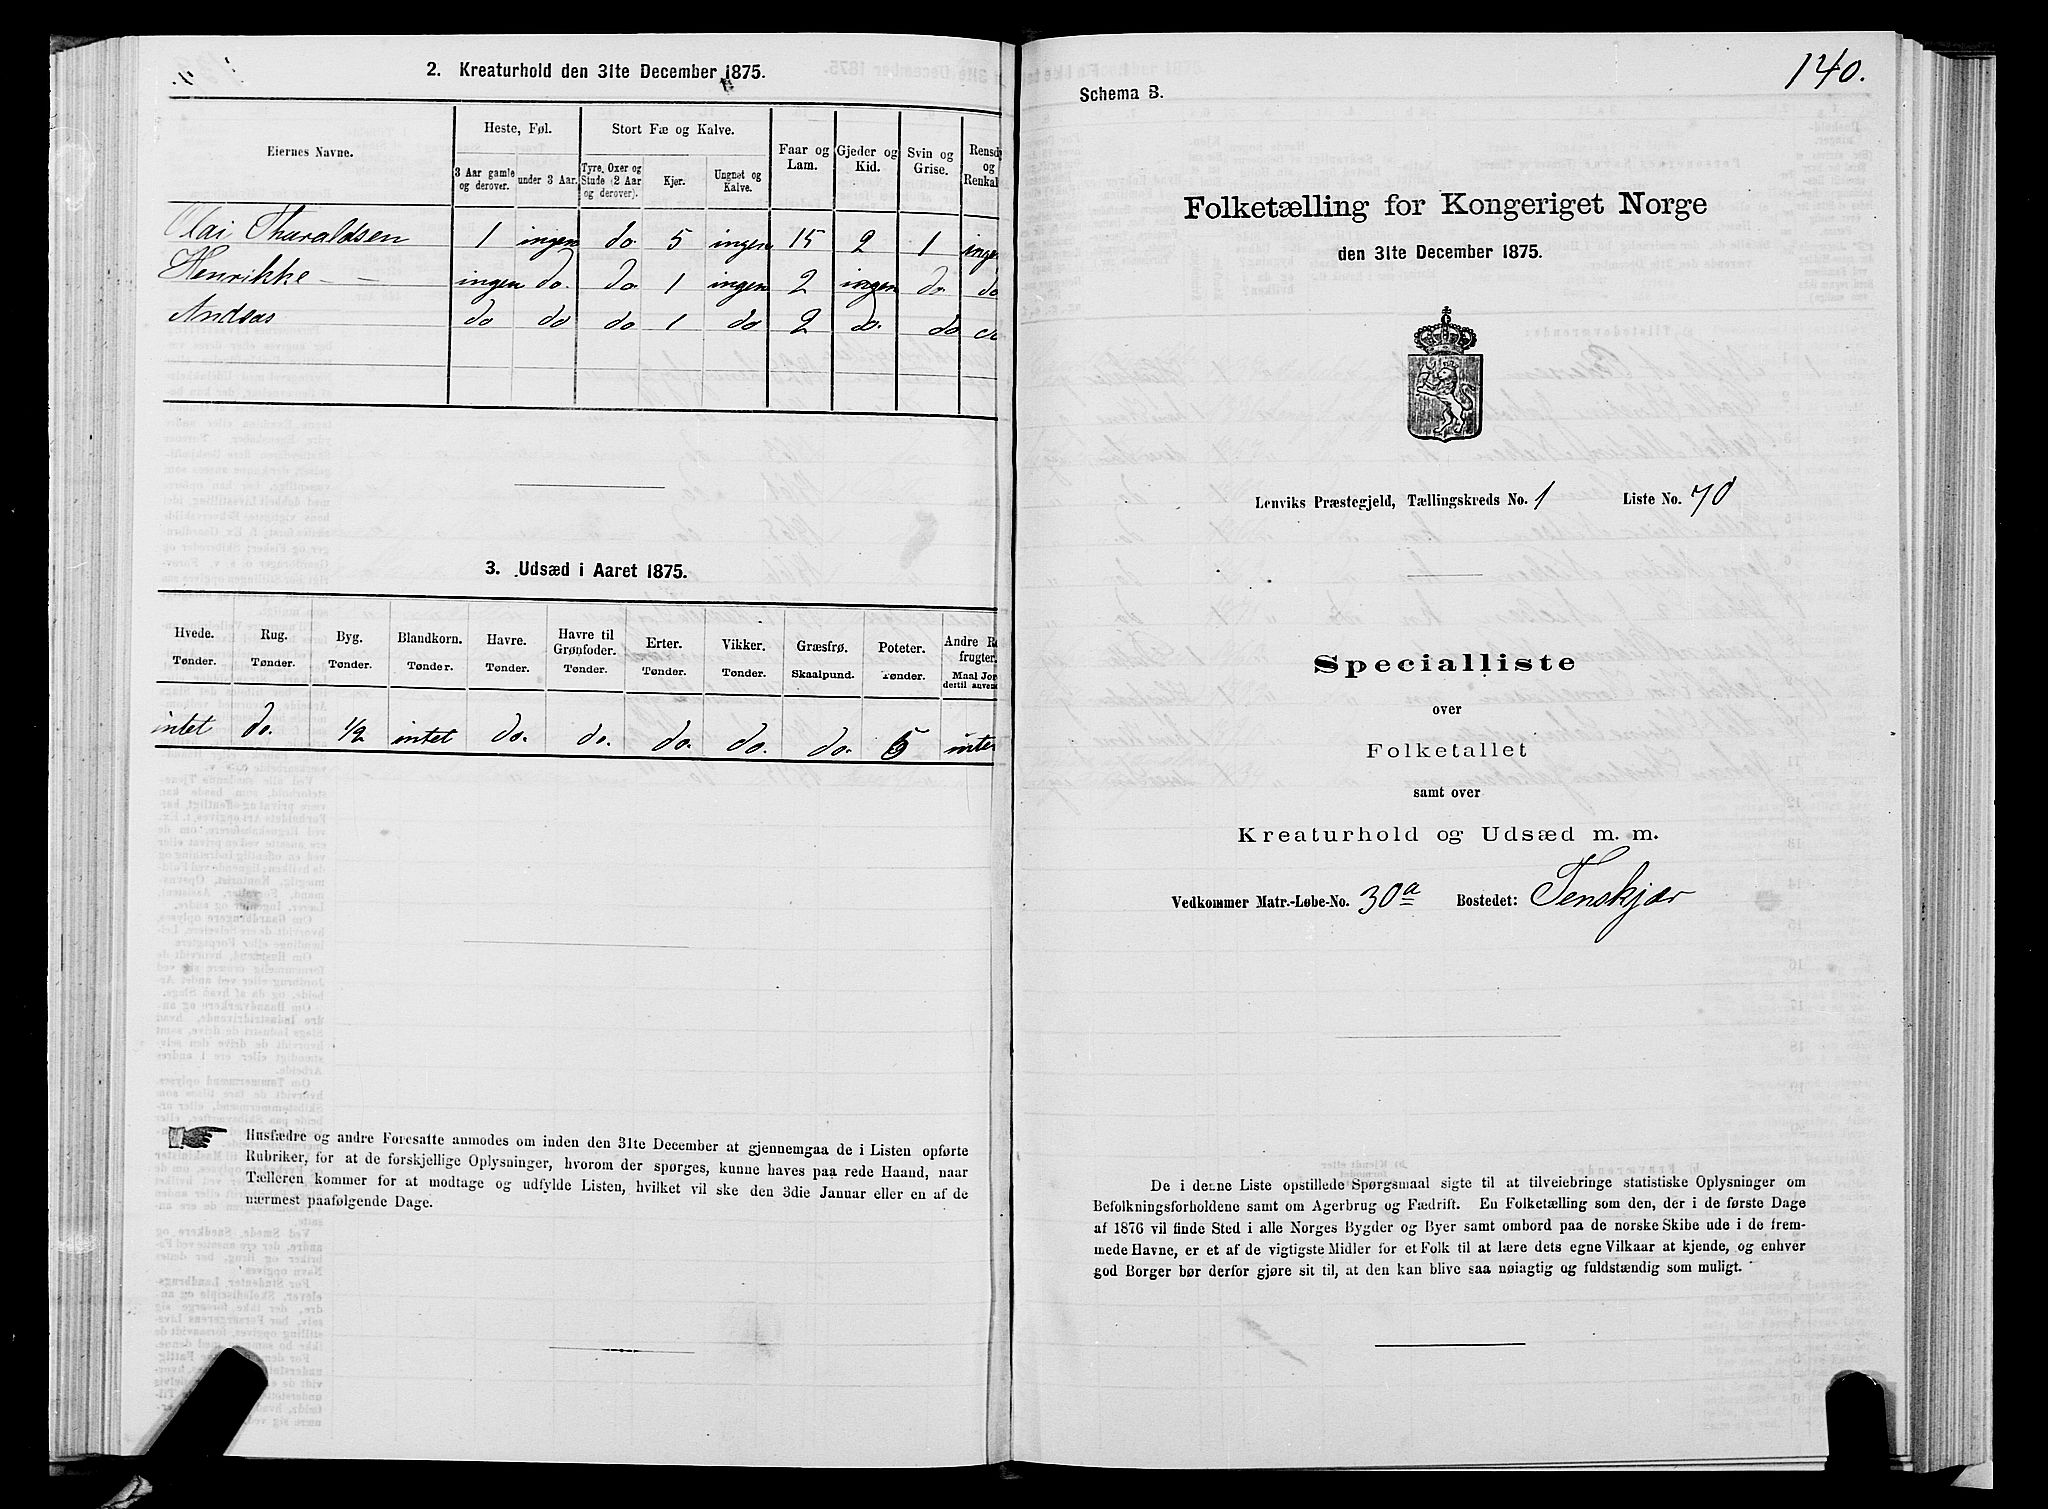 2. Kreaturhold den 31te December 1875.
Eiernes Navne.
Heste, Føl.
Stort Fæ og Kalve.
Faar og Lam.
Gjeder og Kid.
Svin og Grise.
Rensd og Renkal
3 Aar gamle og derover.
under 3 Aar.
Tyre, Oxer og Stude (2 Aar og derover).
Kjør.
Ungnøt og Kalve.
Olai Tharaldsen 1 ingen do. 5 ingen 15 2 1 inge
Henrikke — ingen do. do. 1 ingen 2 ingen do. do
Andsas do do do 1 do 2 do. do
3. Udsæd i Aaret 1875.
Hvede. Rug. Byg. Blandkorn. Havre. Havre til Grønfoder. Erter. Vikker. Græsfrø. Poteter. Andre R frugter.
Tønder. Tønder. Tønder. Tønder. Tønder. Tønder. Tønder. Tønder. Skaalpund. Tønder. Maal Jor dertil anvend
intet do. 1/2 intet do. do. do. do. do. 5 inte
Husfædre og andre Foresatte anmodes om inden den 31te December at gjennemgaa de i Listen opførte
Rubriker, for at de forskjellige Oplysninger, hvorom der spørges, kunne haves paa rede Haand, naar
Tælleren kommer for at modtage og udfylde Listen, hvilket vil ske den 3die Januar eller en af de
nærmest paafølgende Dage.
140.
Schema B.
Folketælling for Kongeriget Norge
den 31te December 1875.
Lenviks Præstegjeld, Tællingskreds No. 1 Liste No. 70
Specialliste
over
Folketallet
samt over
Kreaturhold og Udsæd m. m.
Vedkommer Matr.-Løbe-No. 30a Bostedet: Tenskjær
De i denne Liste opstillede Spørgsmaal sigte til at tilveiebringe statistiske Oplysninger om
Befolkningsforholdene samt om Agerbrug og Fædrift. En Folketælling som den, der i de første Dage
af 1876 vil finde Sted i alle Norges Bygder og Byer samt ombord paa de norske Skibe ude i de frem-
mede Havne, er et af de vigtigste Midler for et Folk til at lære dets egne Vilkaar at kjende, og enhver
god Borger bør derfor gjøre sit til, at den kan blive saa nøiagtig og fuldstændig som muligt.